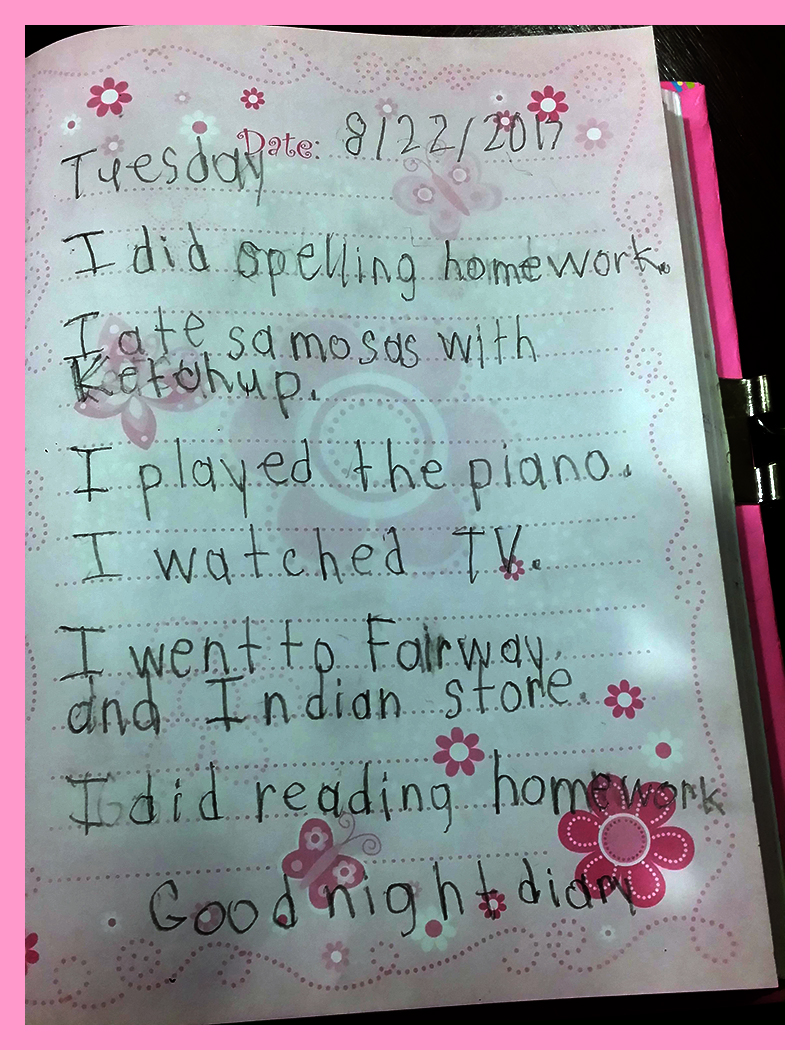 Date: 8/22/2017
Tuesday
I did spelling homework.
I ate samosas with
Ketchup.
I played the piano.
I watched TV.
I went to Fairway
and Indian store.
I did reading homework
Good night diary